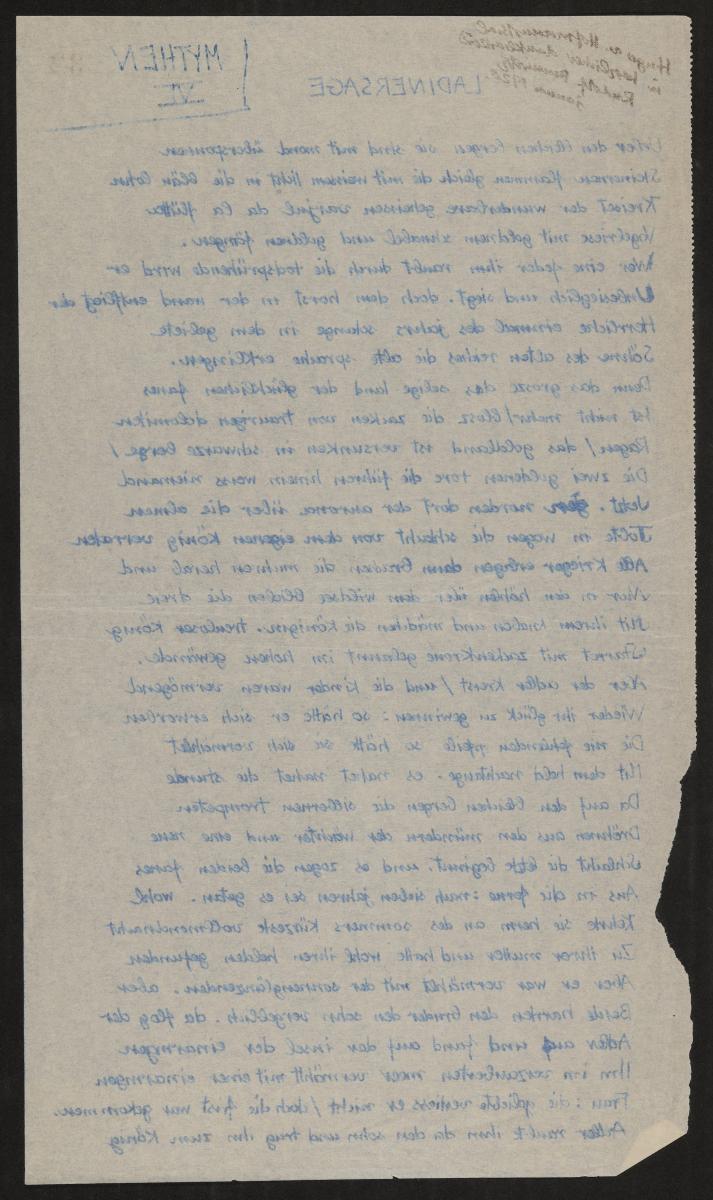 Hugo v. Hofmannsthal
in herzlicher
Rudolf
Januar
MYTHEN
VI
LADINERSAGE
Unter den bleichen bergen sie sind mit mond übersponnen
Steinernen flammen gleich die mit weissem licht in die bläu lohn
Kreiset der wunderbare geheissen varjul da la flüta
Vogelriese mit goldnem schnabel und goldnen fängen.
Wer eine feder ihm raubt durch die todsprühende wird er
Unbesieglich und siegt. doch dem horst in der wand entfliegt der
Herrliche einmal des jahrs solange in dem gebiete
Söhne des alten reiches die alte sprache erklingen.
Denn das grosze das selige land der glücklichen fanes
Ist nicht mehr/ blosz die zacken von traurigen dolomiten
Ragen/ das goldland ist versunken in schwarze berge/
Die zwei goldenen tore die führen hinein weiss niemand
Jetzt. gen norden dort der aurona über die almen
Tobte in wogen die schlacht von dem eigenen könig verraten
Alle krieger erlagen dann brausen die muhren herab und
Nur in den höhlen über dem wildsee blieben die drei
Mit ihrem knaben und mädchen die königin. treuloser könig
Starret mit zackenkrone gebannt im hohen gewände.
Aber der adler kreist/ und die kinder waren vermögend
Wieder ihr glück zu gewinnen: so hätte er sich erworben
Die nie fehlenden pfeile so hätte sie sich vermählet
Mit dem held nachtauge. es nahet nahet die stunde
Da auf den bleichen bergen die silbernen trompeten
Dröhnen aus den mündern der wächter und eine neue
Schlacht die letzte beginnt. und es zogen die beiden fanes
Aus in die ferne: nach sieben jahren sei es getan. wohl
Kehrte sie heim an des sommers kürzeste vollmondnacht
Zu ihrer mutter und hatte wohl ihren helden gefunden
Aber er war vermählt mit der sonnenglänzenden. aber
Beide harrten den bruder den sohn vergeblich. da flog der
Adler auf und fand auf der insel der einarmigen
Ihn im verzauberten meer vermählt mit einer einarmigen
Frau: die geliebte verliess er nicht/ doch/ die frist war gekommen.
Adler raubte ihm da den sohn und trug ihn zum könig